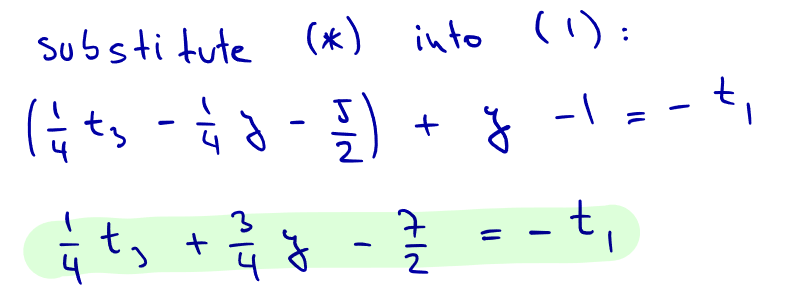 substitute (*) into (1):
(1/4 t₃ - 1/4 y - 5/2) + y - 1 = - t₁
1/4 t₃ + 3/4 y - 7/2 = - t₁